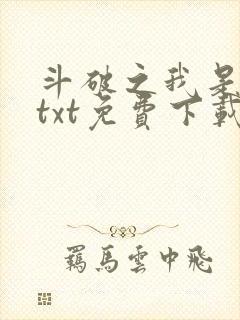 斗破之我是
txt免費下載
羈馬雲中飛